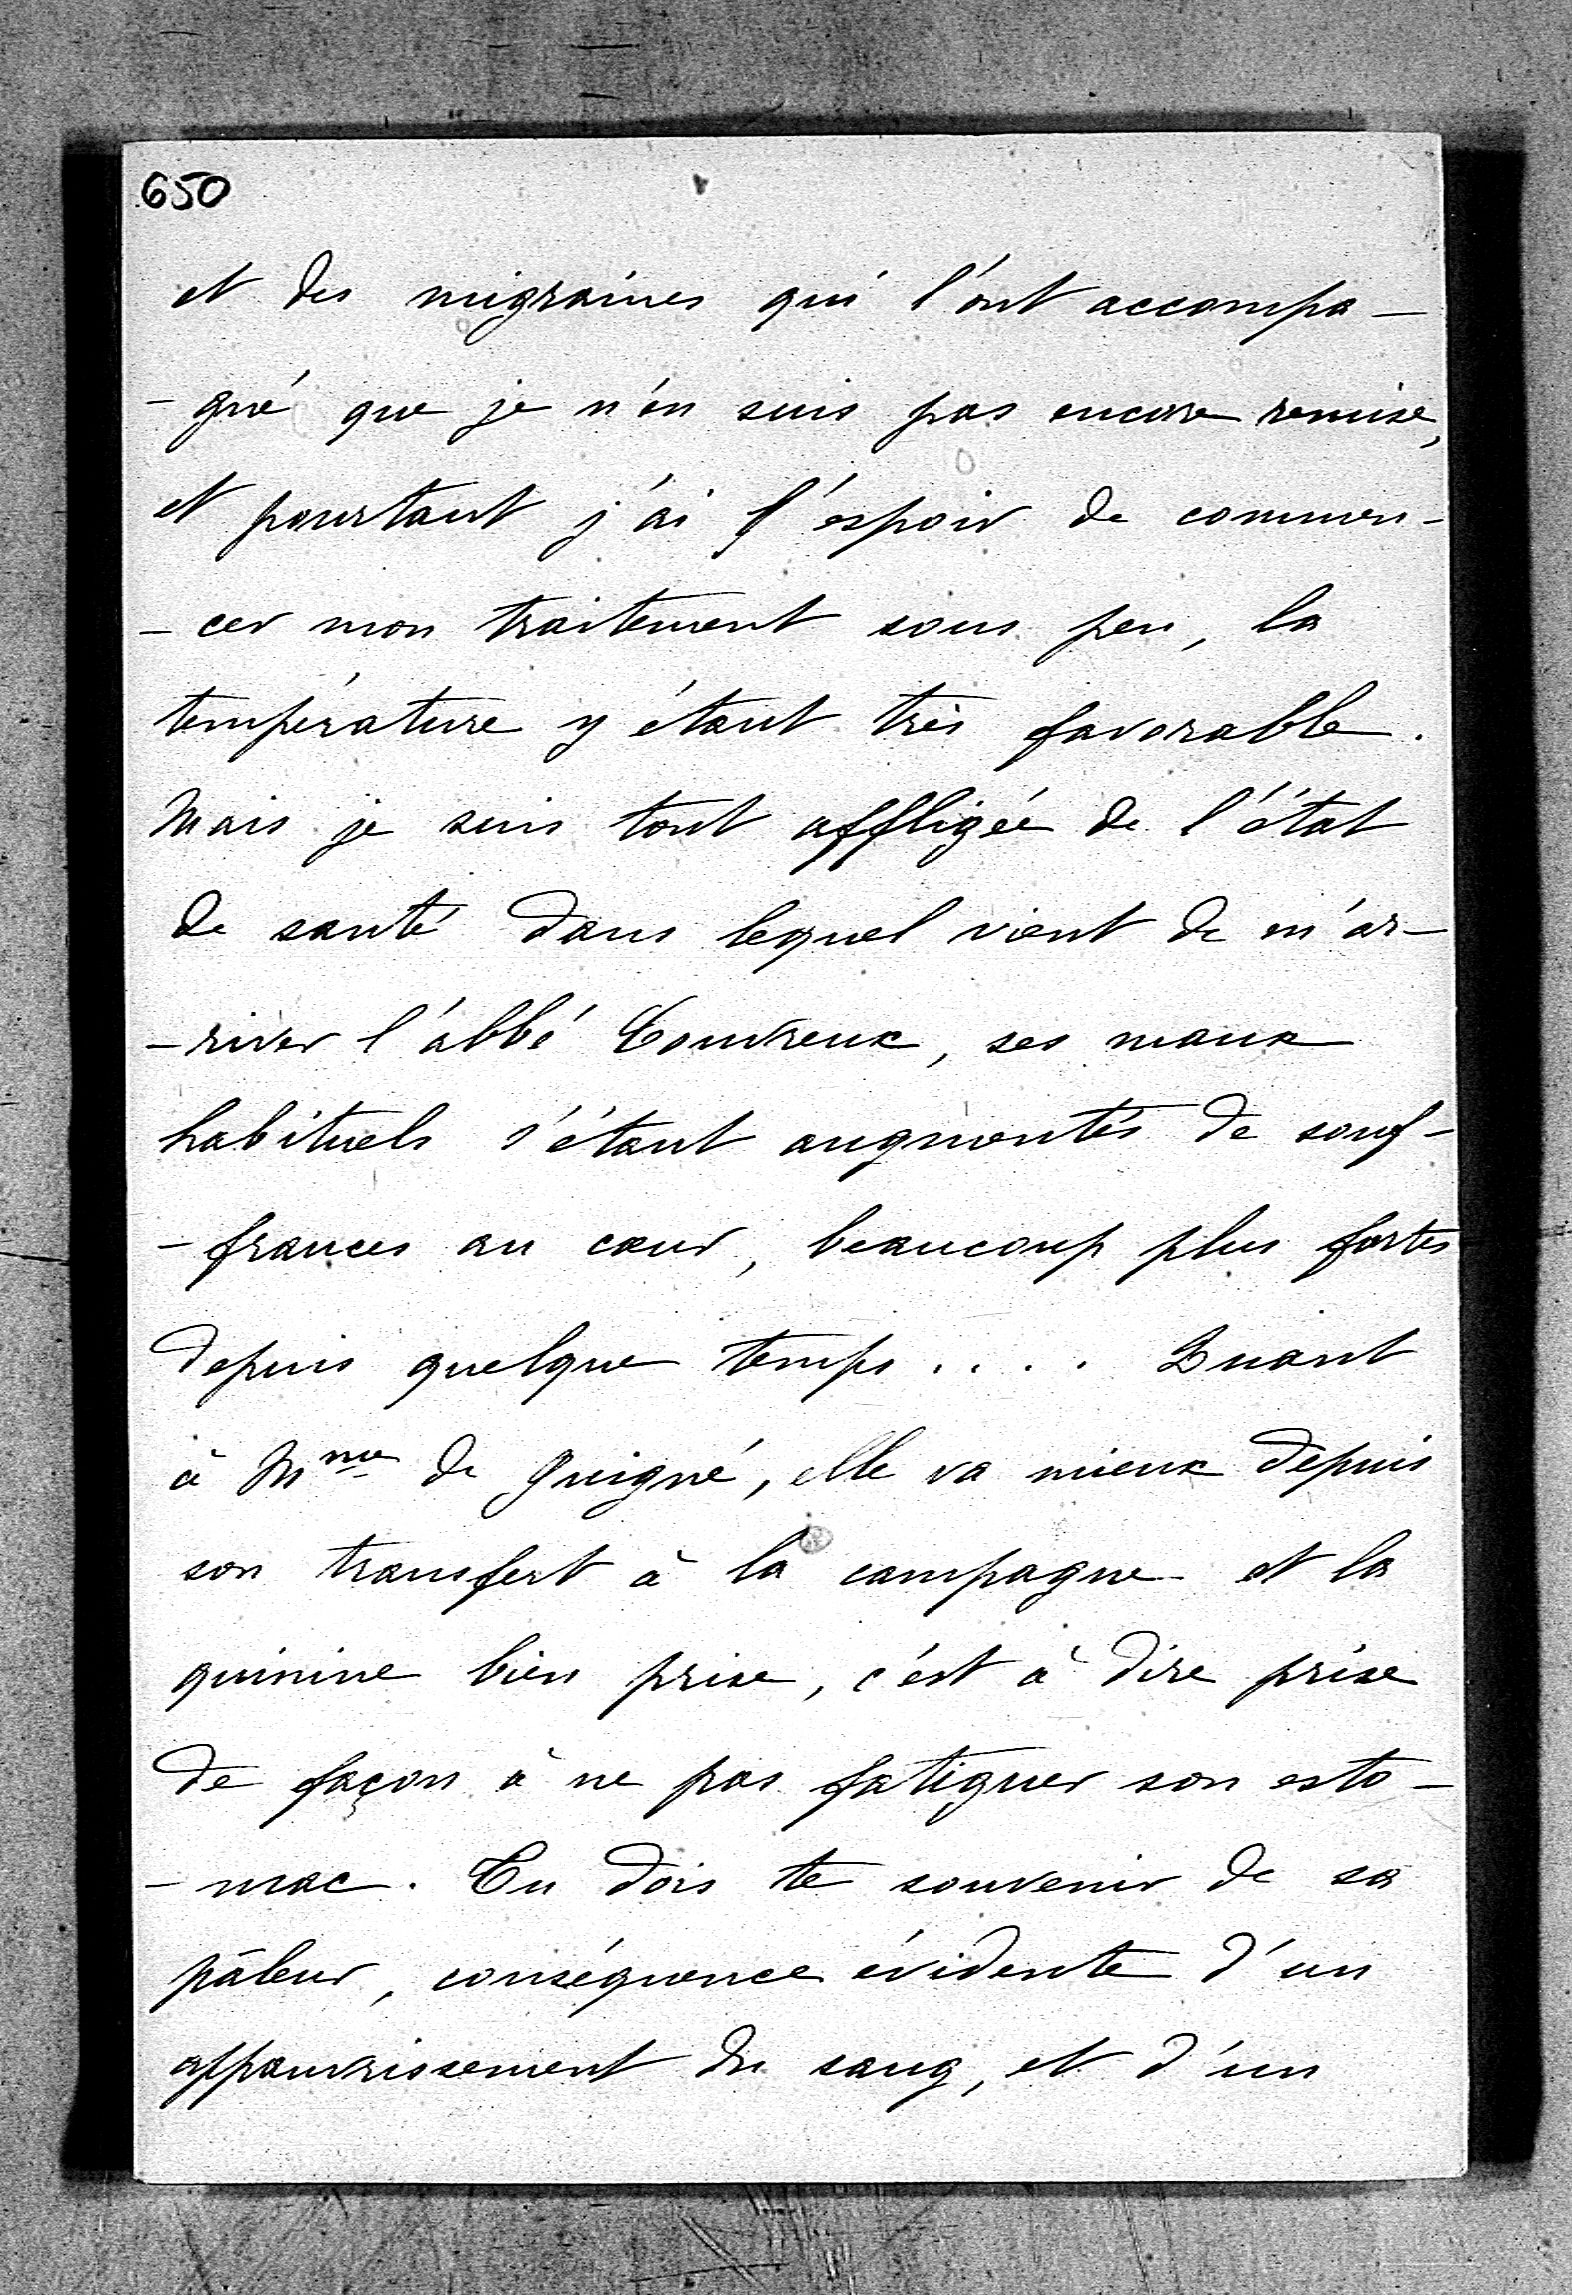 650
et des migraines qui l'ont accompa-
-gné que je n'en suis pas encore remise,
et pourtant j'ai l'espoir de commen-
-cer mon traitement sous peu, la
température y étant très favorable.
Mais je suis tout affligée de l'état
de santé dans lequel vient de m'ar-
-river l'abbé Couvreux, ses maux
habituels s'étant augmentés de souf-
-frances au cœur, beaucoup plus fortes
depuis quelque temps.... Quant
à Mme de Guigné, elle va mieux depuis
son transfert à la campagne et la
quinine bien prise, c'est à dire prise
de façon à ne pas fatiguer son esto-
-mac. Tu dois te souvenir de sa
pâleur, conséquence évidente d'un
appauvrissement du sang, et d'un